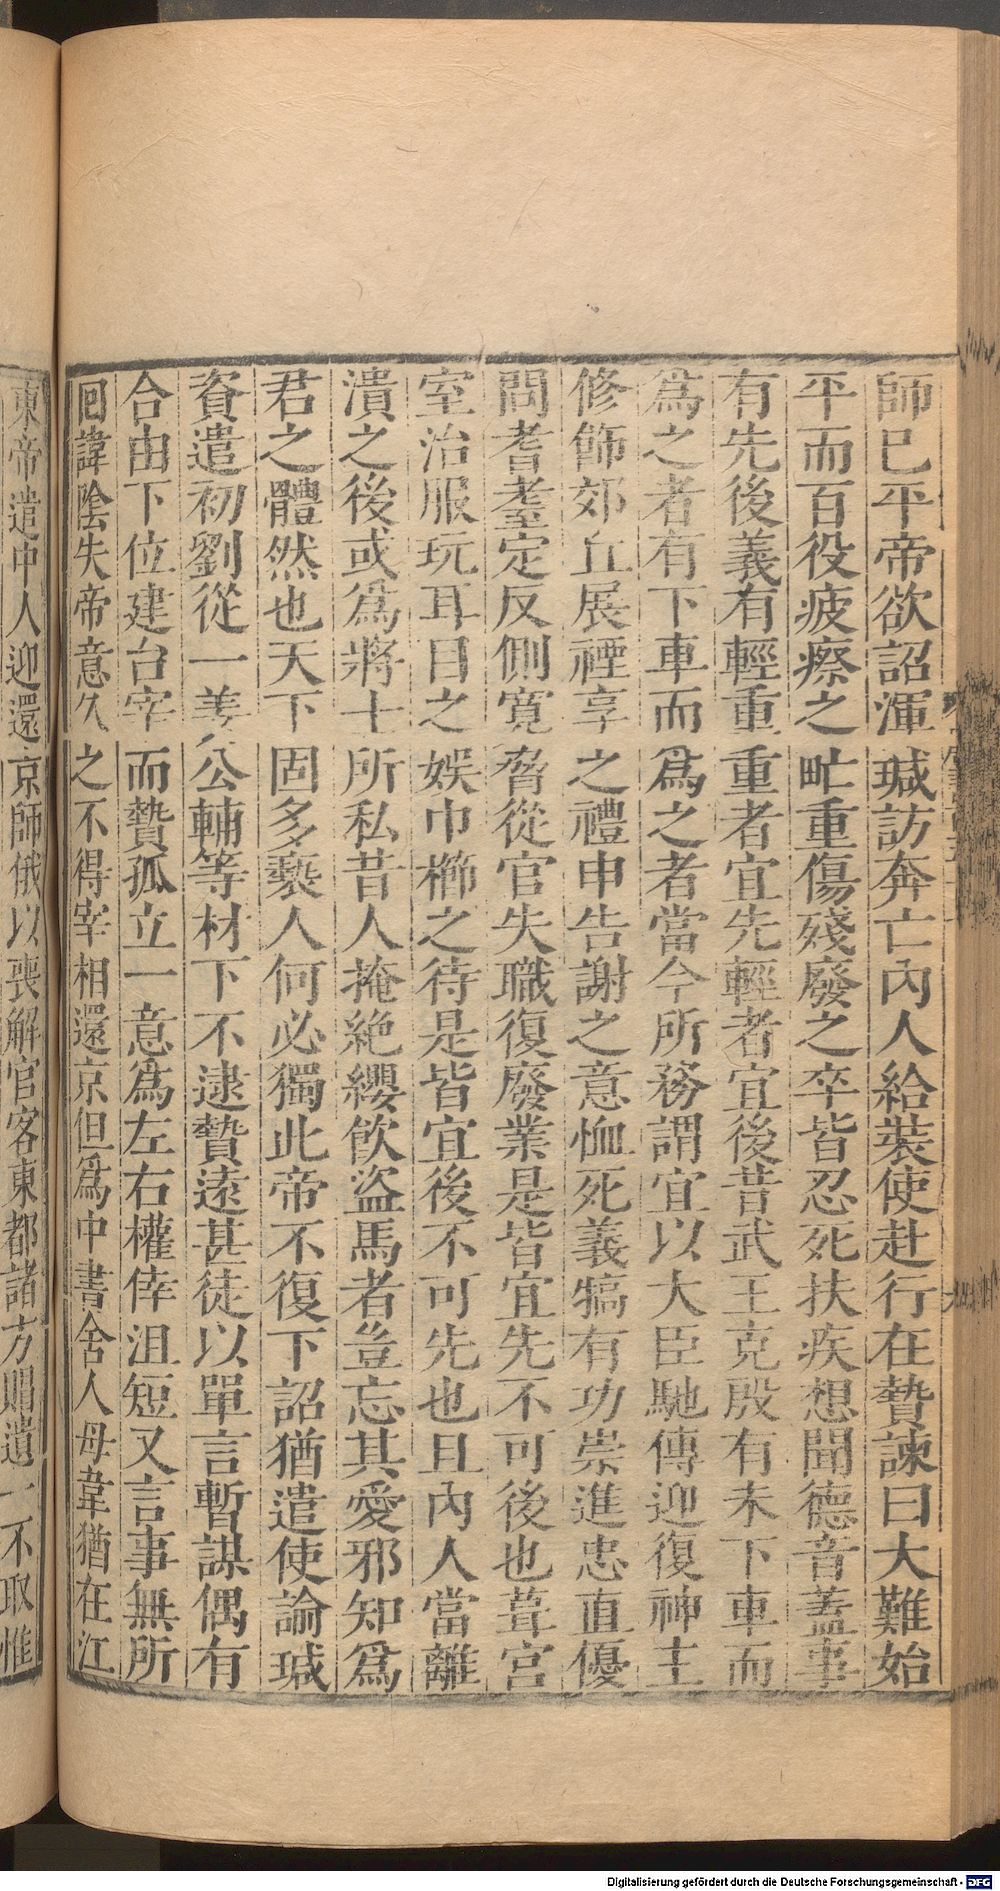 師已平帝欲詔渾瑊訪奔亡內人給裝使赴行在贄諫曰大難始
平而百役疲瘵之甿重傷殘廢之卒皆忍死扶疾想聞德音蓋事
有先後義有輕重重者宜先輕者宜後昔武王克殷有未下車而
爲之者有下車而爲之者當今所務謂宜以大臣馳傳迎復神主
修飾郊丘展禋享之禮申告謝之意恤死義犒有功崇進忠直優
問耆耋定反側寬脅從官失職復廢業是皆宜先不可後也葺宮
室治服玩耳目之娛巾櫛之待是皆宜後不可先也且內人當離
潰之後或爲將士所私昔人掩絶纓飲盜馬者豈忘其愛邪知爲
君之體然也天下固多褻人何必獨此帝不復下詔猶遣使諭瑊
資遣初劉從一姜公輔等材下不逮贄遠甚徒以單言暫謀偶有
合由下位建台宰而贄孤立一意爲左右權倖沮短又言事無所
回諱陰失帝意久之不得宰相還京但爲中書舍人母韋猶在江
東帝遣中人迎還京師俄以喪解官客東都諸方賵遺一不取惟
Digitalisierung gefördert durch die Deutsche Forschungsgemeinschaft - DFG